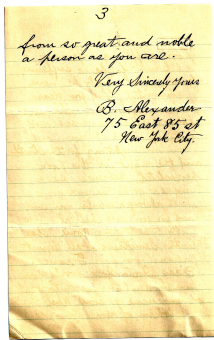 3
from so great and noble
a person as you are.
Very Sincerly Yours
B. Alexander
75 East 85 st
New York City.